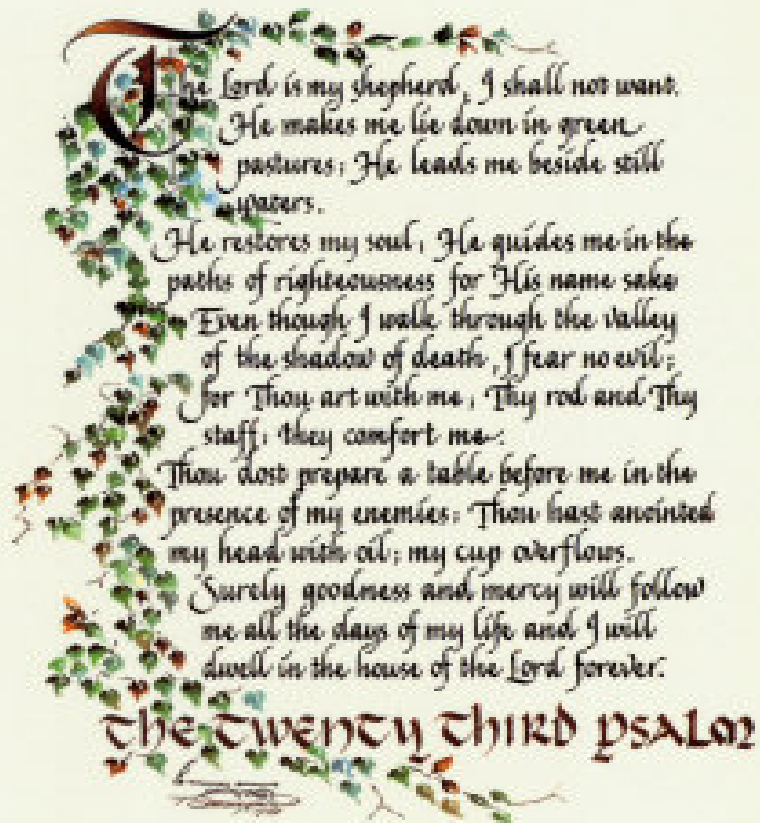 The Lord is my shepherd, I shall not want.
He makes me lie down in green
pastures; He leads me beside still
waters.
He restores my soul; He guides me in the
paths of righteousness for His name sake
Even though I walk through the valley
of the shadow of death, I fear no evil;
for Thou art with me; Thy rod and Thy
staff; they comfort me.
Thou dost prepare a table before me in the
presence of my enemies: Thou hast anointed
my head with oil; my cup overflows.
Surely goodness and mercy will follow
me all the days of my life and I will
dwell in the house of the Lord forever.
The Twenty Third Psalm